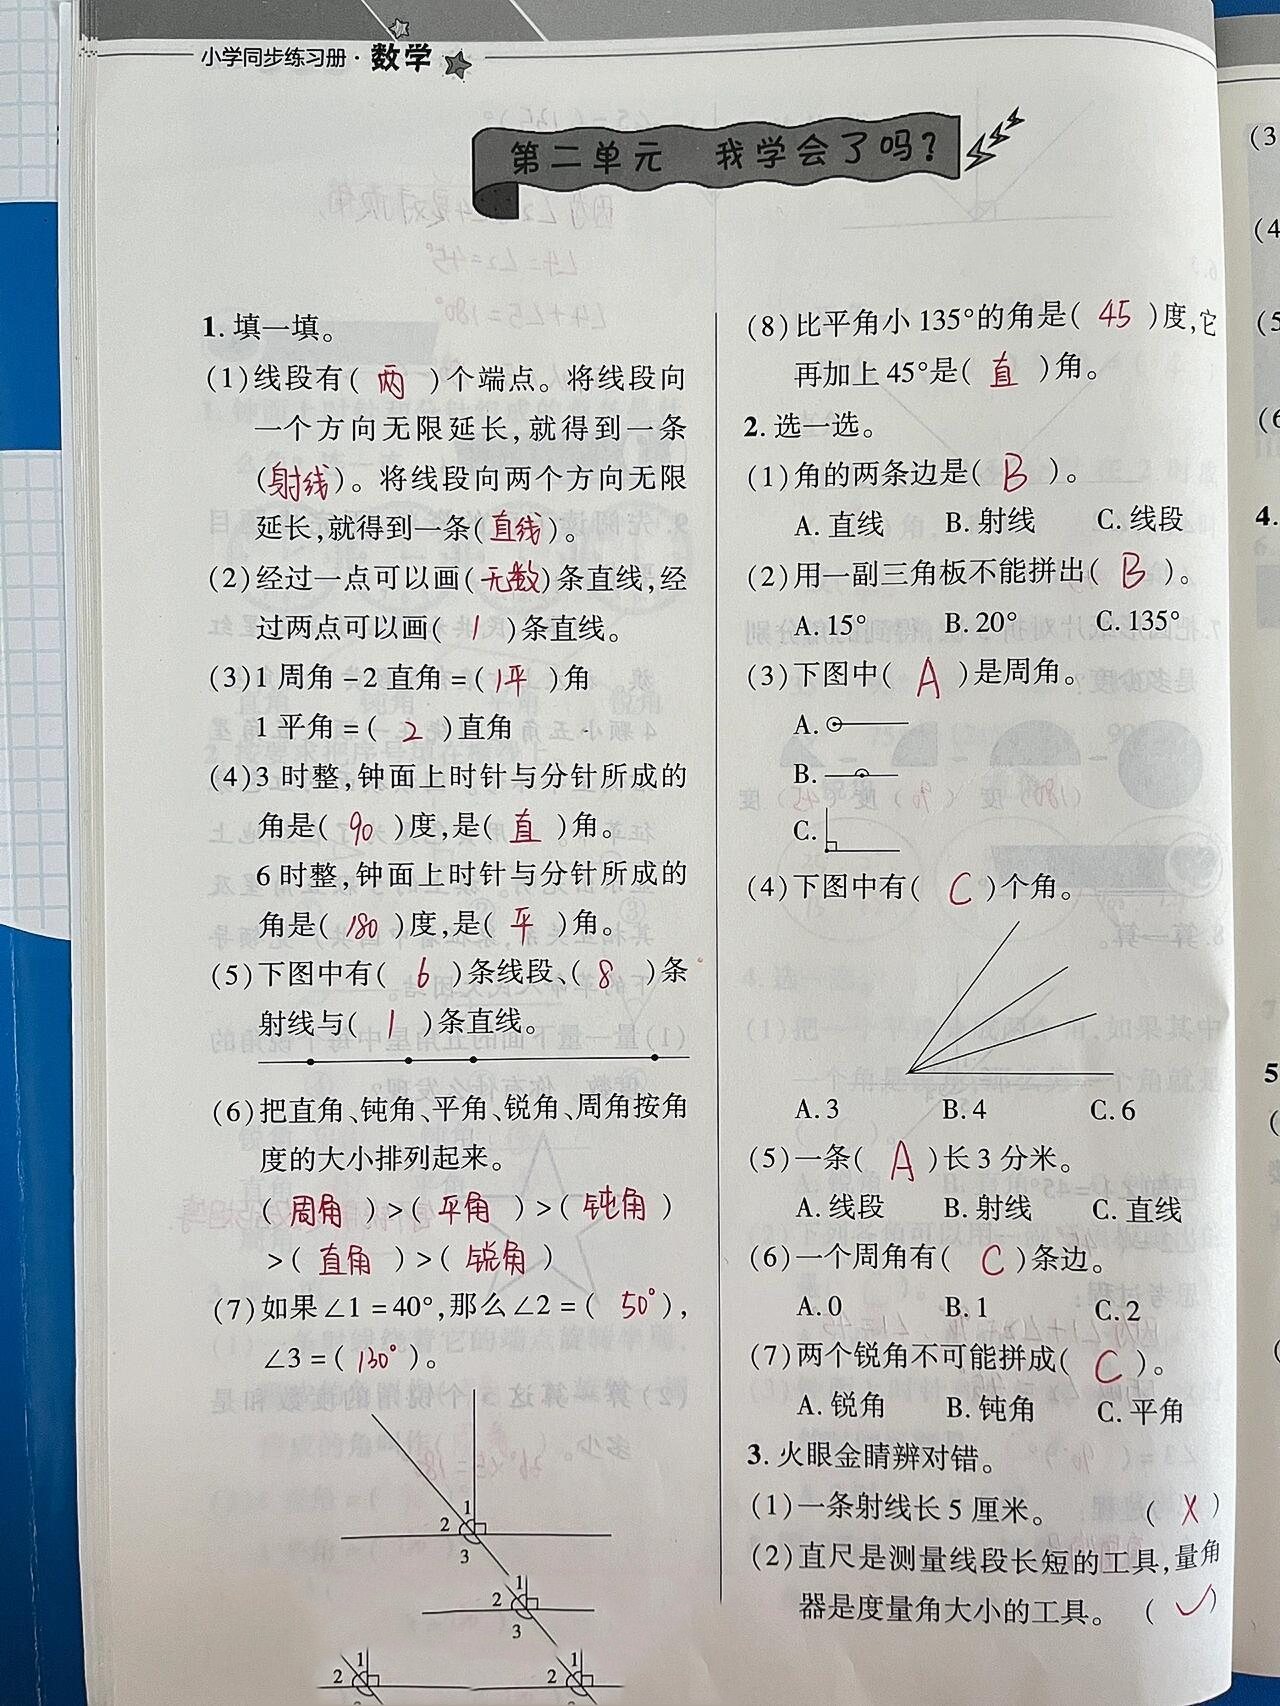 小学同步练习册·数学
第二单元 我学会了吗？
1. 填一填。
(1)线段有( 两 )个端点。将线段向
一个方向无限延长,就得到一条
(射线)。将线段向两个方向无限
延长,就得到一条(直线)。
(2)经过一点可以画(无数)条直线,经
过两点可以画( 1 )条直线。
(3)1周角-2直角=( 1平 )角
1平角=( 2 )直角
(4)3时整,钟面上时针与分针所成的
角是( 90 )度,是( 直 )角。
6时整,钟面上时针与分针所成的
角是( 180 )度,是( 平 )角。
(5)下图中有( 6 )条线段、( 8 )条
射线与( 1 )条直线。
(6)把直角、钝角、平角、锐角、周角按角
度的大小排列起来。
( 周角 )>( 平角 )>( 钝角 )
>( 直角 )>( 锐角 )
(7)如果∠1=40°,那么∠2=( 50° ),
∠3=( 130° )。
1
2
3
1
2
3
1
2
1
2
(8)比平角小135°的角是( 45 )度,它
再加上45°是( 直 )角。
2. 选一选。
(1)角的两条边是( B )。
A. 直线 B. 射线 C. 线段
(2)用一副三角板不能拼出( B )。
A. 15° B. 20° C. 135°
(3)下图中( A )是周角。
A.
B.
C.
(4)下图中有( C )个角。
A. 3 B. 4 C. 6
(5)一条( A )长3分米。
A. 线段 B. 射线 C. 直线
(6)一个周角有( C )条边。
A. 0 B. 1 C. 2
(7)两个锐角不可能拼成( C )。
A. 锐角 B. 钝角 C. 平角
3. 火眼金睛辨对错。
(1)一条射线长5厘米。 ( X )
(2)直尺是测量线段长短的工具,量角
器是度量角大小的工具。 ( ✓ )
(3
(4
(5
(6
4.
5